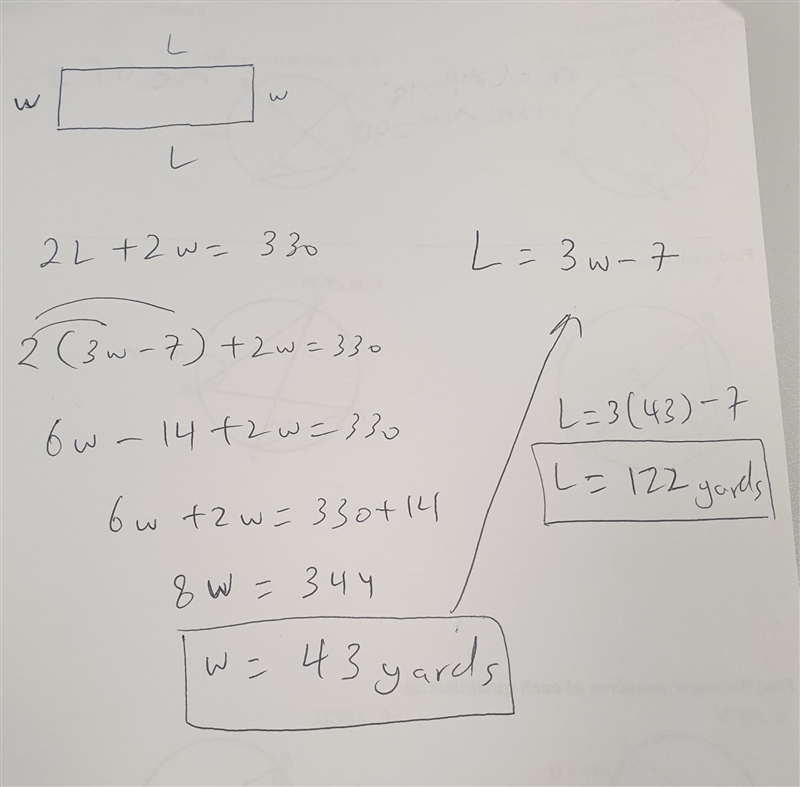 L
w w
L
2L + 2w = 330
L = 3w - 7
2(3w - 7) + 2w = 330
6w - 14 + 2w = 330
L = 3(43) - 7
L = 122 yards
6w + 2w = 330 + 14
8w = 344
w = 43 yards